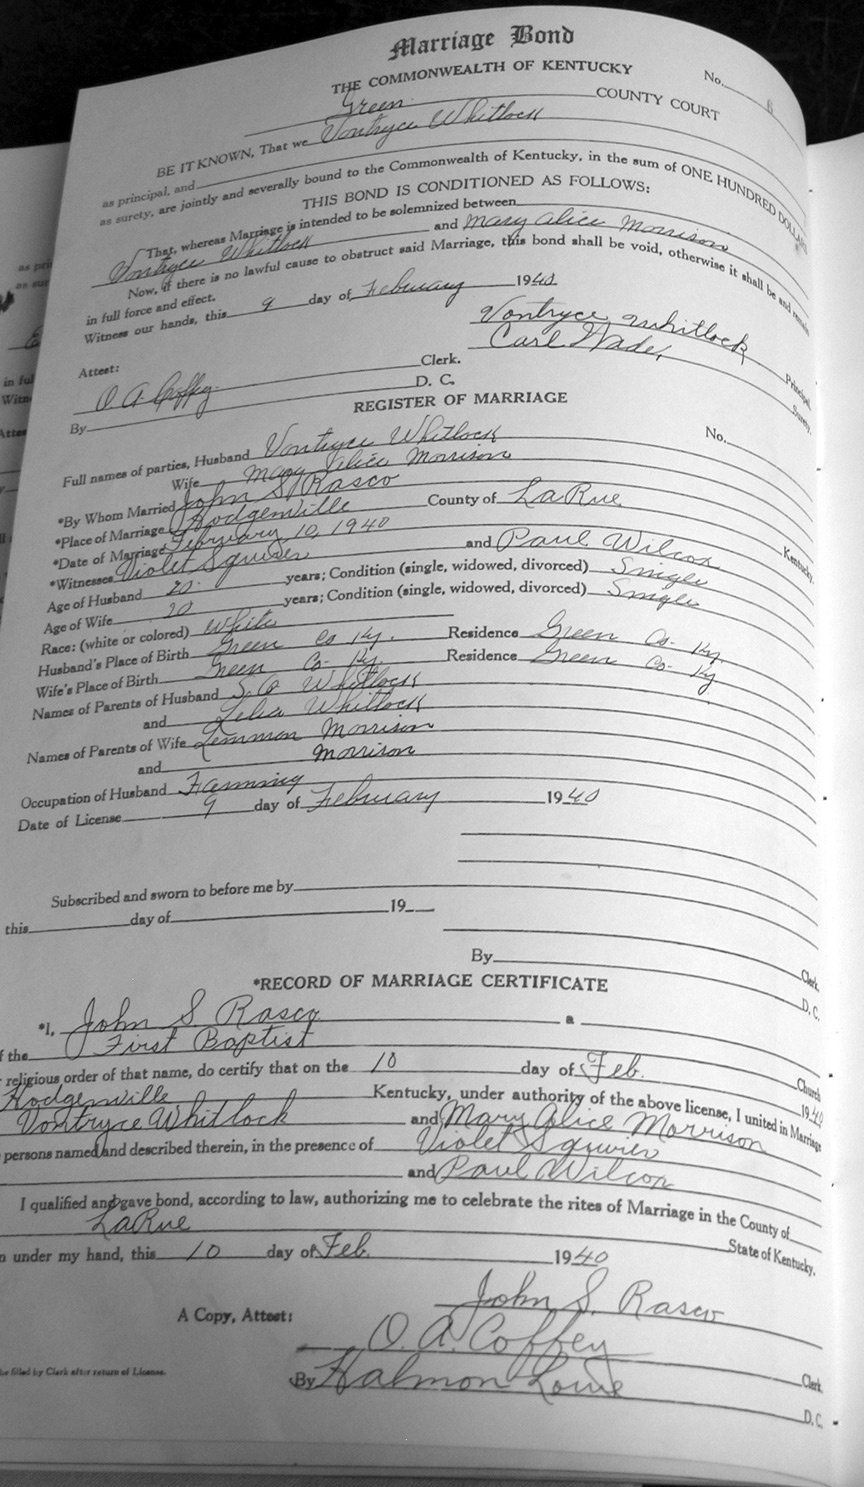 Marriage Bond
THE COMMONWEALTH OF KENTUCKY No.
Green COUNTY COURT
BE IT KNOWN, That we Vontryce Whitlock
as principal, and
as surety, are jointly and severally bound to the Commonwealth of Kentucky, in the sum of ONE HUNDRED DOLLARS
THIS BOND IS CONDITIONED AS FOLLOWS:
That, whereas Marriage is intended to be solemnized between
Vontryce Whitlock and Mary Alice Morrison
Now, if there is no lawful cause to obstruct said Marriage, this bond shall be void, otherwise it shall be and remain
in full force and effect.
Witness our hands, this 9 day of February 1940
Vontryce Whitlock Principal,
Carl Wade, Surety.
Attest:
O A Coffey Clerk.
By D. C.
REGISTER OF MARRIAGE
No.
Full names of parties, Husband Vontryce Whitlock
Wife Mary Alice Morrison
*By Whom Married John S Rasco
*Place of Marriage Hodgenville County of LaRue Kentucky.
*Date of Marriage February 10, 1940
*Witnesses Violet Squires and Paul Wilcox
Age of Husband 20 years; Condition (single, widowed, divorced) Single
Age of Wife 20 years; Condition (single, widowed, divorced) Single
Race: (white or colored) White
Husband's Place of Birth Green Co Ky. Residence Green Co. Ky.
Wife's Place of Birth Green Co. Ky. Residence Green Co. Ky
Names of Parents of Husband Whitlock
and Lelia Whitlock
Names of Parents of Wife Lemmon Morrison
and Morrison
Occupation of Husband Farming
Date of License 9 day of February 1940
Subscribed and sworn to before me by
this day of 19
Clerk.
By D. C.
*RECORD OF MARRIAGE CERTIFICATE
*I, John S Rasco a
of the First Baptist Church
religious order of that name, do certify that on the 10 day of Feb. 1940
Hodgenville Kentucky, under authority of the above license, I united in Marriage
Vontryce Whitlock and Mary Alice Morrison
persons named and described therein, in the presence of Violet Squires
and Paul Wilcox
I qualified and gave bond, according to law, authorizing me to celebrate the rites of Marriage in the County of
LaRue State of Kentucky.
under my hand, this 10 day of Feb. 1940
John S. Rasco
A Copy, Attest:
O. A. Coffey Clerk
By Halmon Lowe D. C.
be filled by Clerk after return of License.